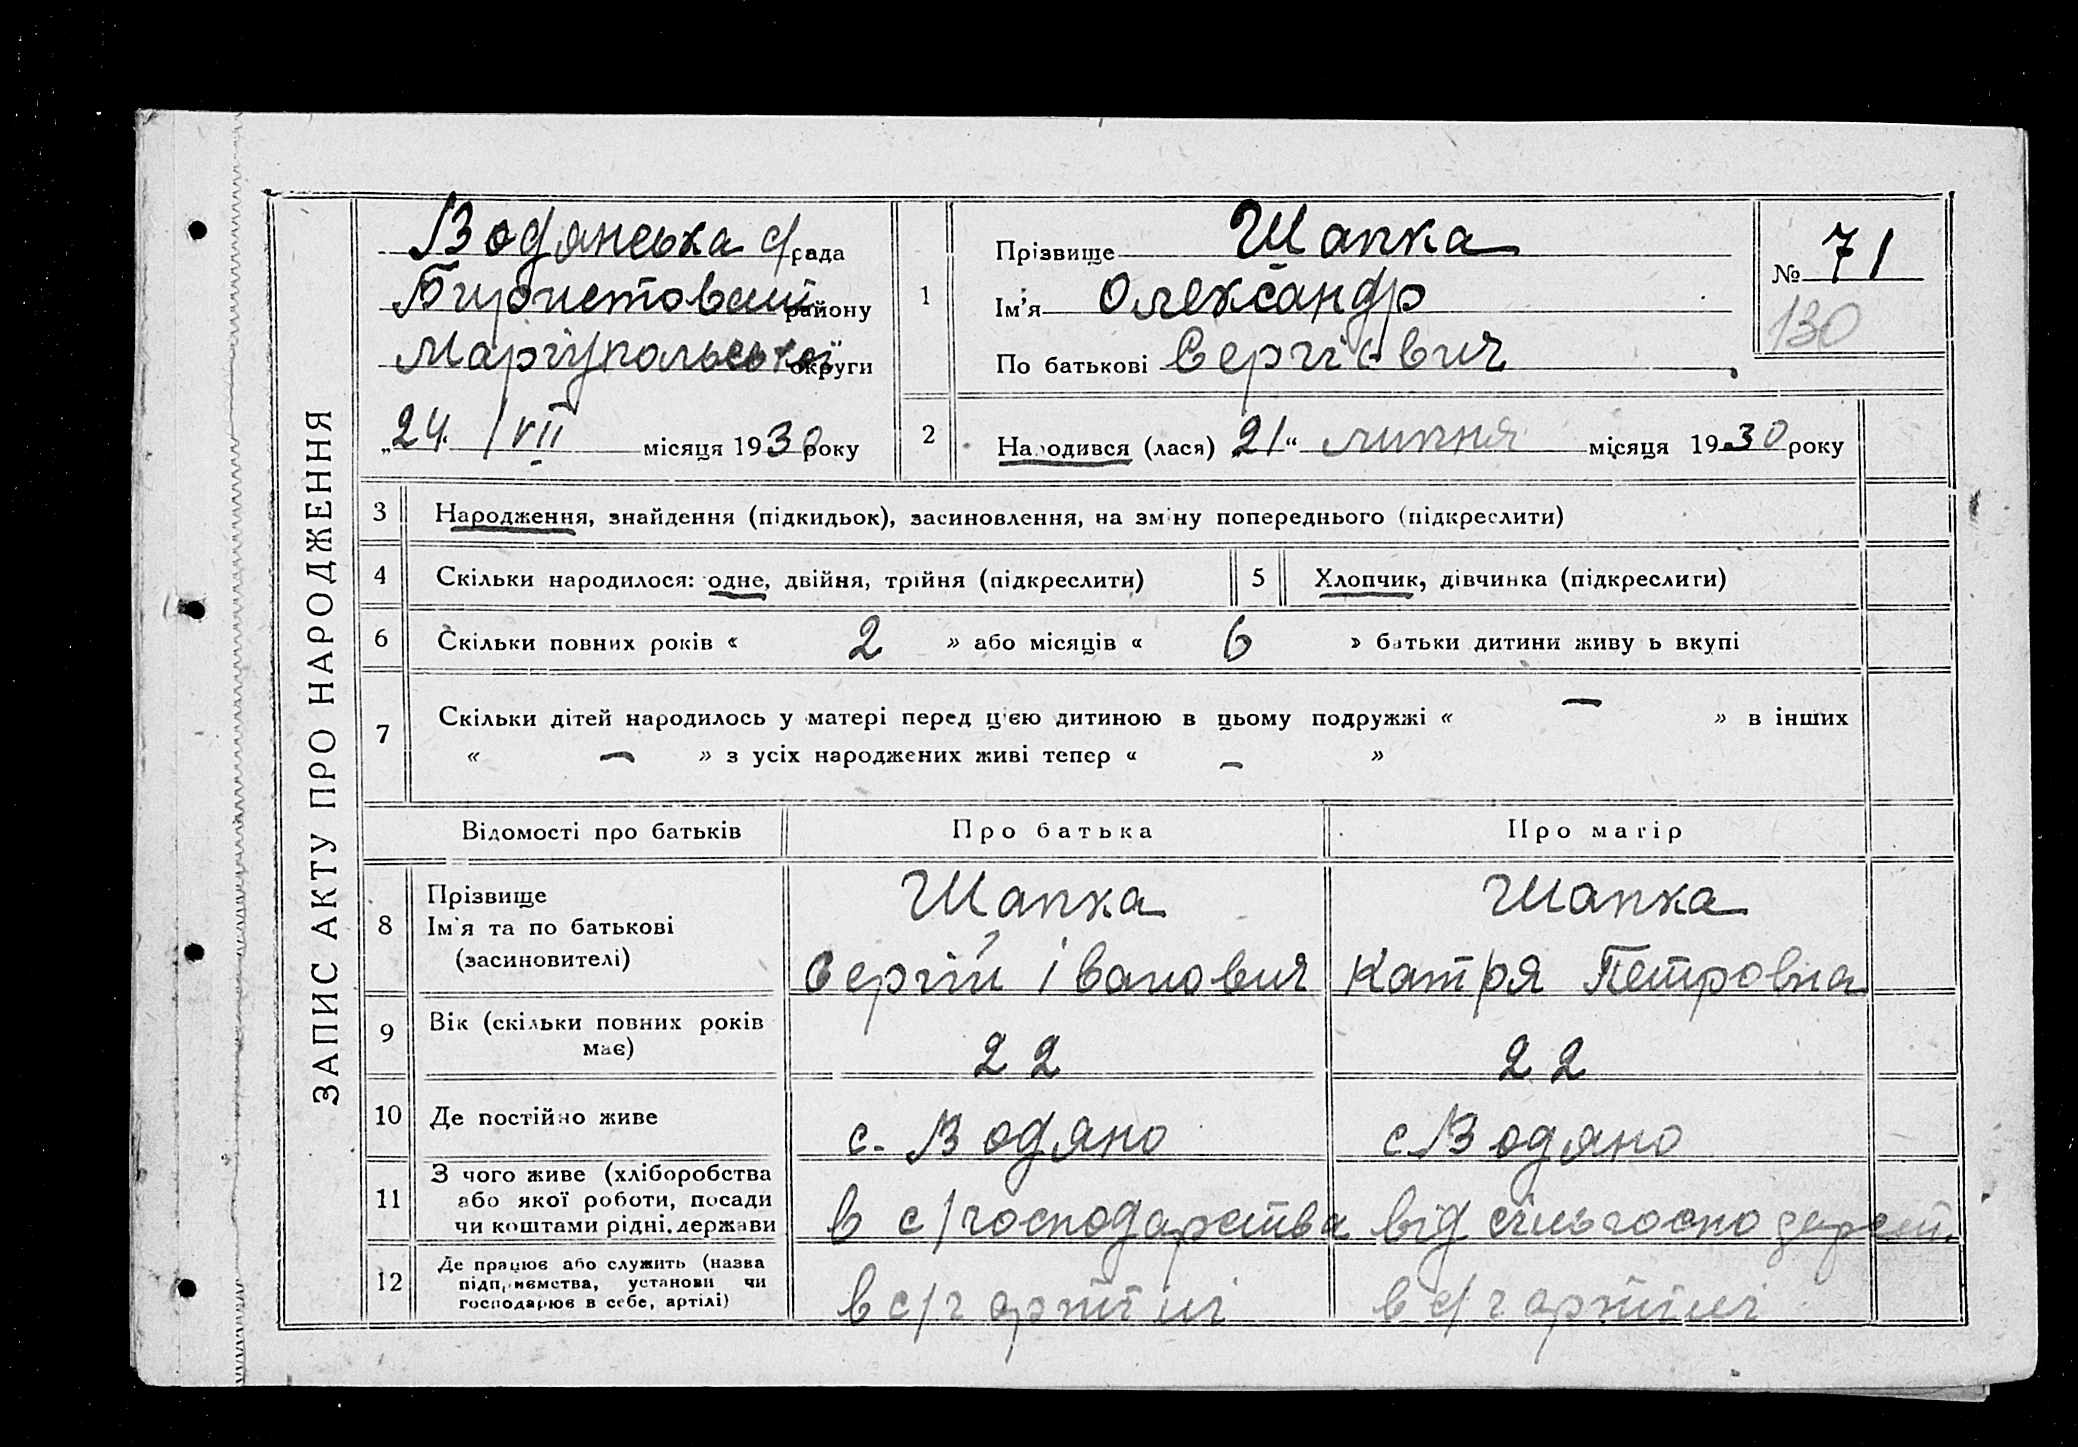 ЗАПИС АКТУ ПРО НАРОДЖЕННЯ
Водянська с/рада
району
Маріупольської округи
„24“ / VII місяця 1930 року
1
Прізвище Шапка
Ім'я Олександр
По батькові Сергієвич
№ 71
130
2 Народився (лася) „21“ липня місяця 1930 року
3 Народження, знайдення (підкидьок), засиновлення, на зміну попереднього (підкреслити)
4 Скільки народилося: одне, двійня, трійня (підкреслити)
5 Хлопчик, дівчинка (підкреслити)
6 Скільки повних років « 2 » або місяців « 6 » батьки дитини живуть вкупі
7 Скільки дітей народилось у матері перед цією дитиною в цьому подружжі « — » в інших
« — » з усіх народжених живі тепер « — »
Відомості про батьків Про батька Про матір
8 Прізвище
Ім'я та по батькові
(засиновителі)
Шапка
Сергій Іванович
Шапка
Катря Петровна
9 Вік (скільки повних років
має)
22 22
10 Де постійно живе с. Водяно с Водяно
11 З чого живе (хліборобства
або якої роботи, посади
чи коштами рідні, держави
в с/господарства від сільгосподарст.
12 Де працює або служить (назва
підприємства, установи чи
господарює в себе, артілі)
в с/г артілі в с/г артілі